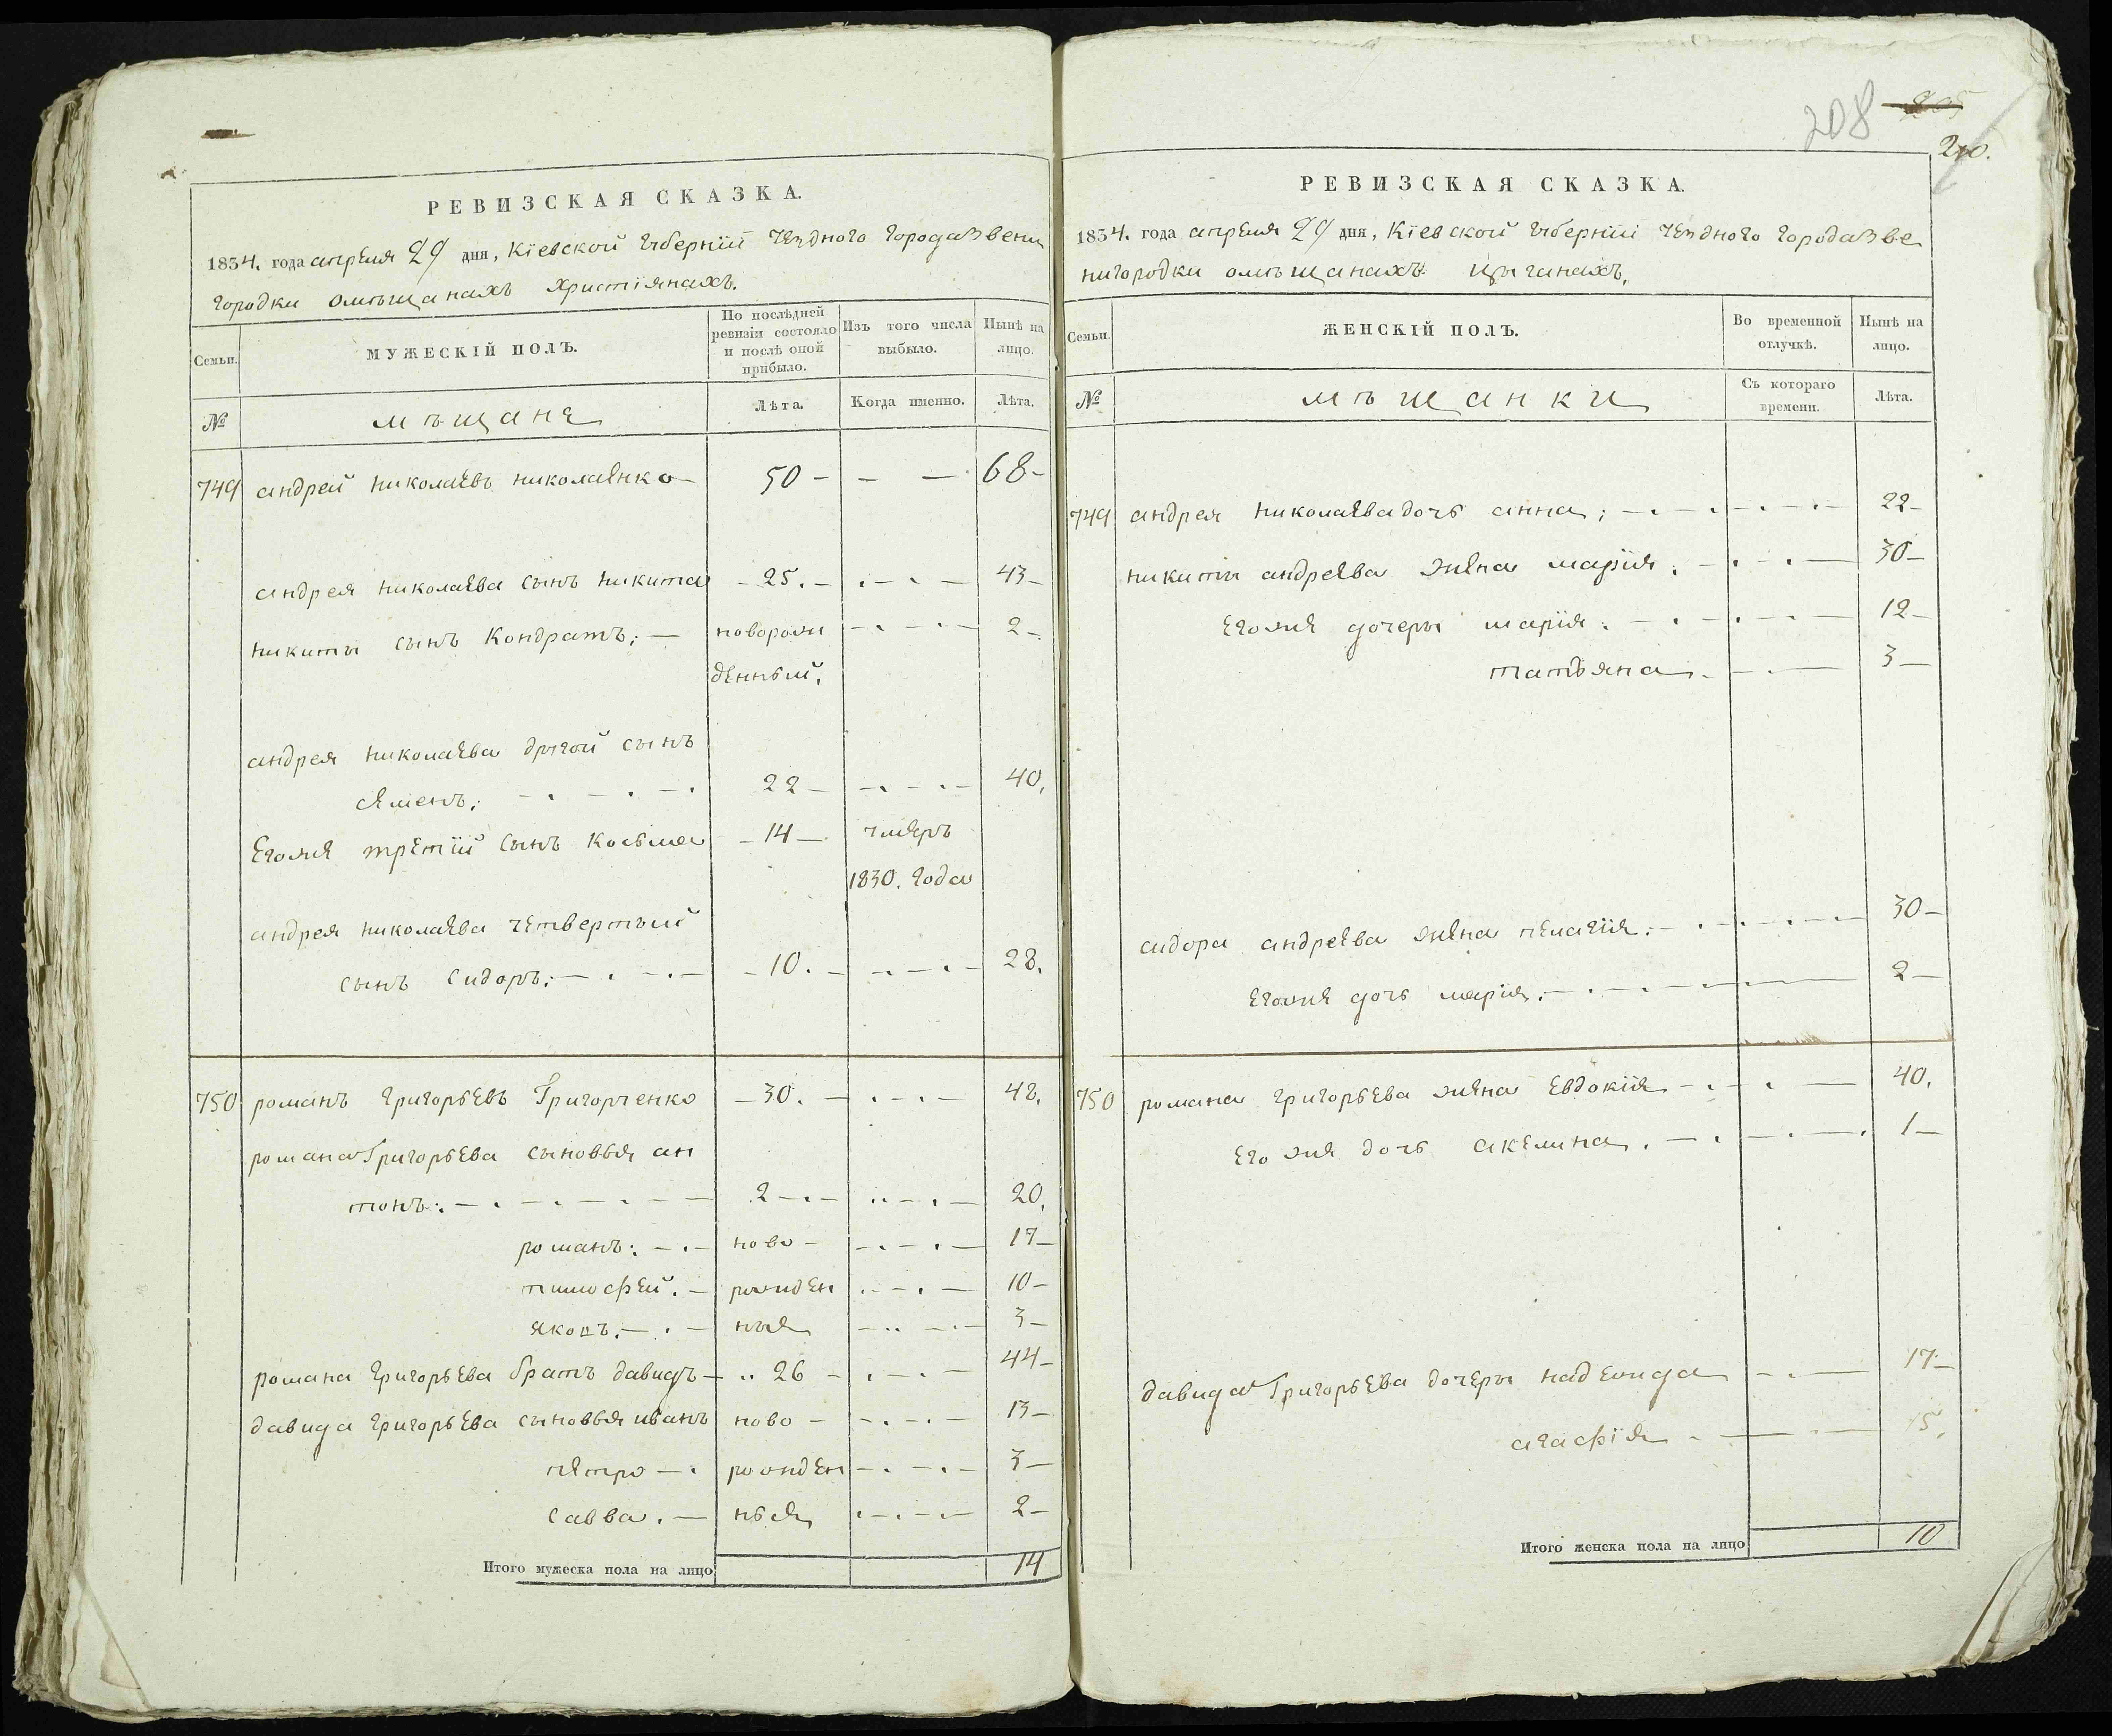 РЕВИЗСКАЯ СКАЗКА.
1834. года апреля 29 дня, Кіевской губерніи уезднаго города Звени
городки о мѣщанахъ христіянахъ.
Семьи.
МУЖЕСКІЙ ПОЛЪ.
По послѣдней ревизіи состояло и послѣ оной прибыло.
Изъ того числа выбыло.
Нынѣ на лицо.
№
мѣщане
Лѣта.
Когда именно.
Лѣта.
749 андрей николаевъ николаенко 50 68
андрея николаева сынъ никита 25. 43
никиты сынъ Кондратъ; новорож 2
денный.
андрея николаева другой сынъ
семенъ; 22 40.
Егоже третій сынъ Косьма 14 умеръ
1830. года
андрея николаева четвертый
сынъ Сидоръ; 10. 28.
750 романъ григорьевъ Григорченко 30. 48.
романа Григорьева сыновья ан
тонъ: 2 20.
романъ: ново 17
тимофей. рожден 10
яковъ. ныя 3
романа григорьева братъ давидъ 26 44
давида григорьева сыновья иванъ ново 13
петро рожден 3
савва. ныя 2
Итого мужеска пола на лицо 14
208 205
210.
РЕВИЗСКАЯ СКАЗКА.
1834. года апреля 29 дня, Кіевской губерніи уезднаго города Зве
нигородки о мѣщанахъ цыганахъ.
Семьи.
ЖЕНСКІЙ ПОЛЪ.
Во временной отлучкѣ.
Нынѣ на лицо.
№
мѣщанки
Съ котораго времени.
Лѣта.
749 андрея николаева дочь анна; 22
никиты андреева жена марія. 30
Егоже дочери марія. 12
татьяна. 3
сидора андреева жена пелагія. 30
Егоже дочь марія. 2
750 романа григорьева жена Евдокія 40.
Его же дочь акелина. 1
давида Григорьева дочери надежда 17
агафія 15.
Итого женска пола на лицо 10